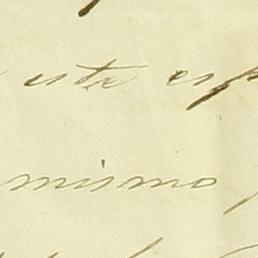 este es
mismo,